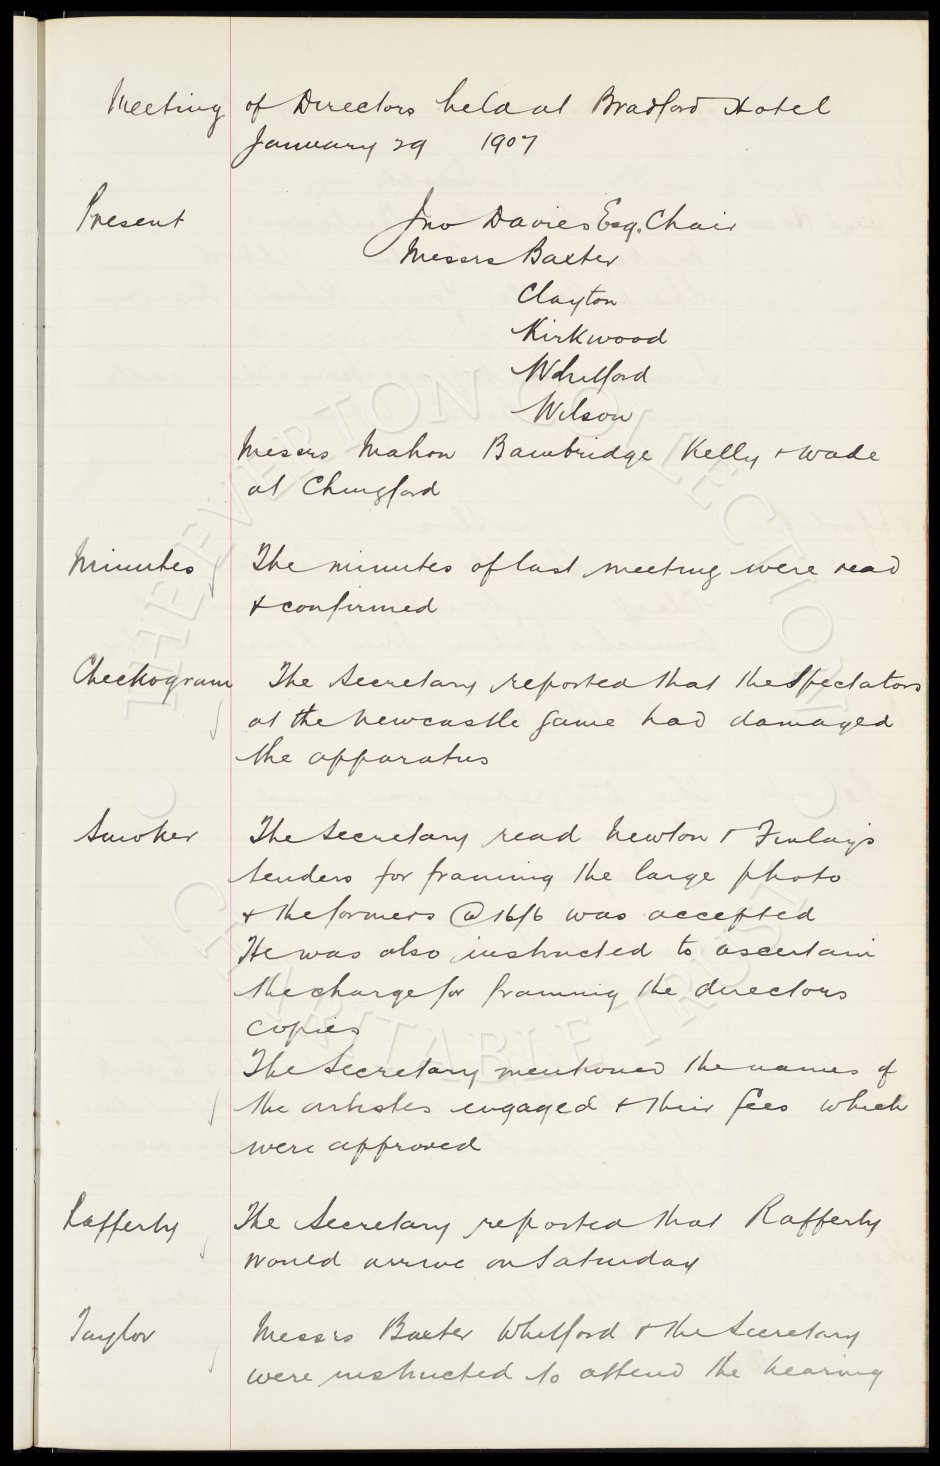 Meeting of Directors held at Bradford Hotel
January 29 1907
Present Jno Davies Esq. Chair
Messrs Baxter
Clayton
Kirkwood
Whitford
Wilson
Messrs Mahon Bainbridge Kelly & Wade
at Chingford
Minutes The minutes of last meeting were read
& confirmed
Checkogram The Secretary reported that the Spectators
at the Newcastle game had damaged
the apparatus
Smoker The Secretary read Newton & Finlays
tenders for framing the large photo
& the formers @ 16/6 was accepted
He was also instructed to ascertain
the charge for framing the directors
copies
The Secretary mentioned the names of
the artistes engaged & their fees which
were approved
Rafferty The Secretary reported that Rafferty
would arrive on Saturday
Taylor Messrs Baxter Whitford & the Secretary
were instructed to attend the hearing
THE EVERTON COLLECTION
CHARITABLE TRUST